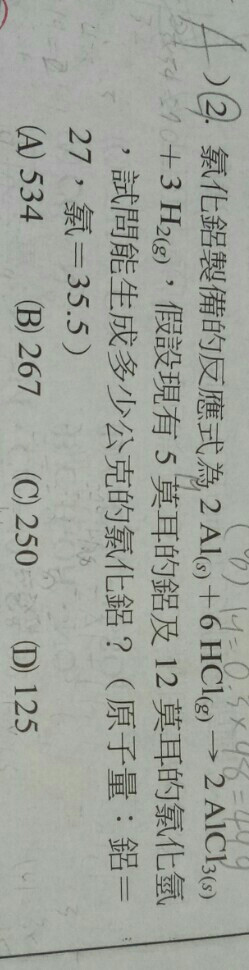 A )②. 氯化鋁製備的反應式為 2 Al(s)+6 HCl(g) → 2 AlCl3(s)
+3 H2(g),假設現有 5 莫耳的鋁及 12 莫耳的氯化氫
,試問能生成多少公克的氯化鋁?(原子量:鋁=
27,氯=35.5)
(A) 534 (B) 267 (C) 250 (D) 125